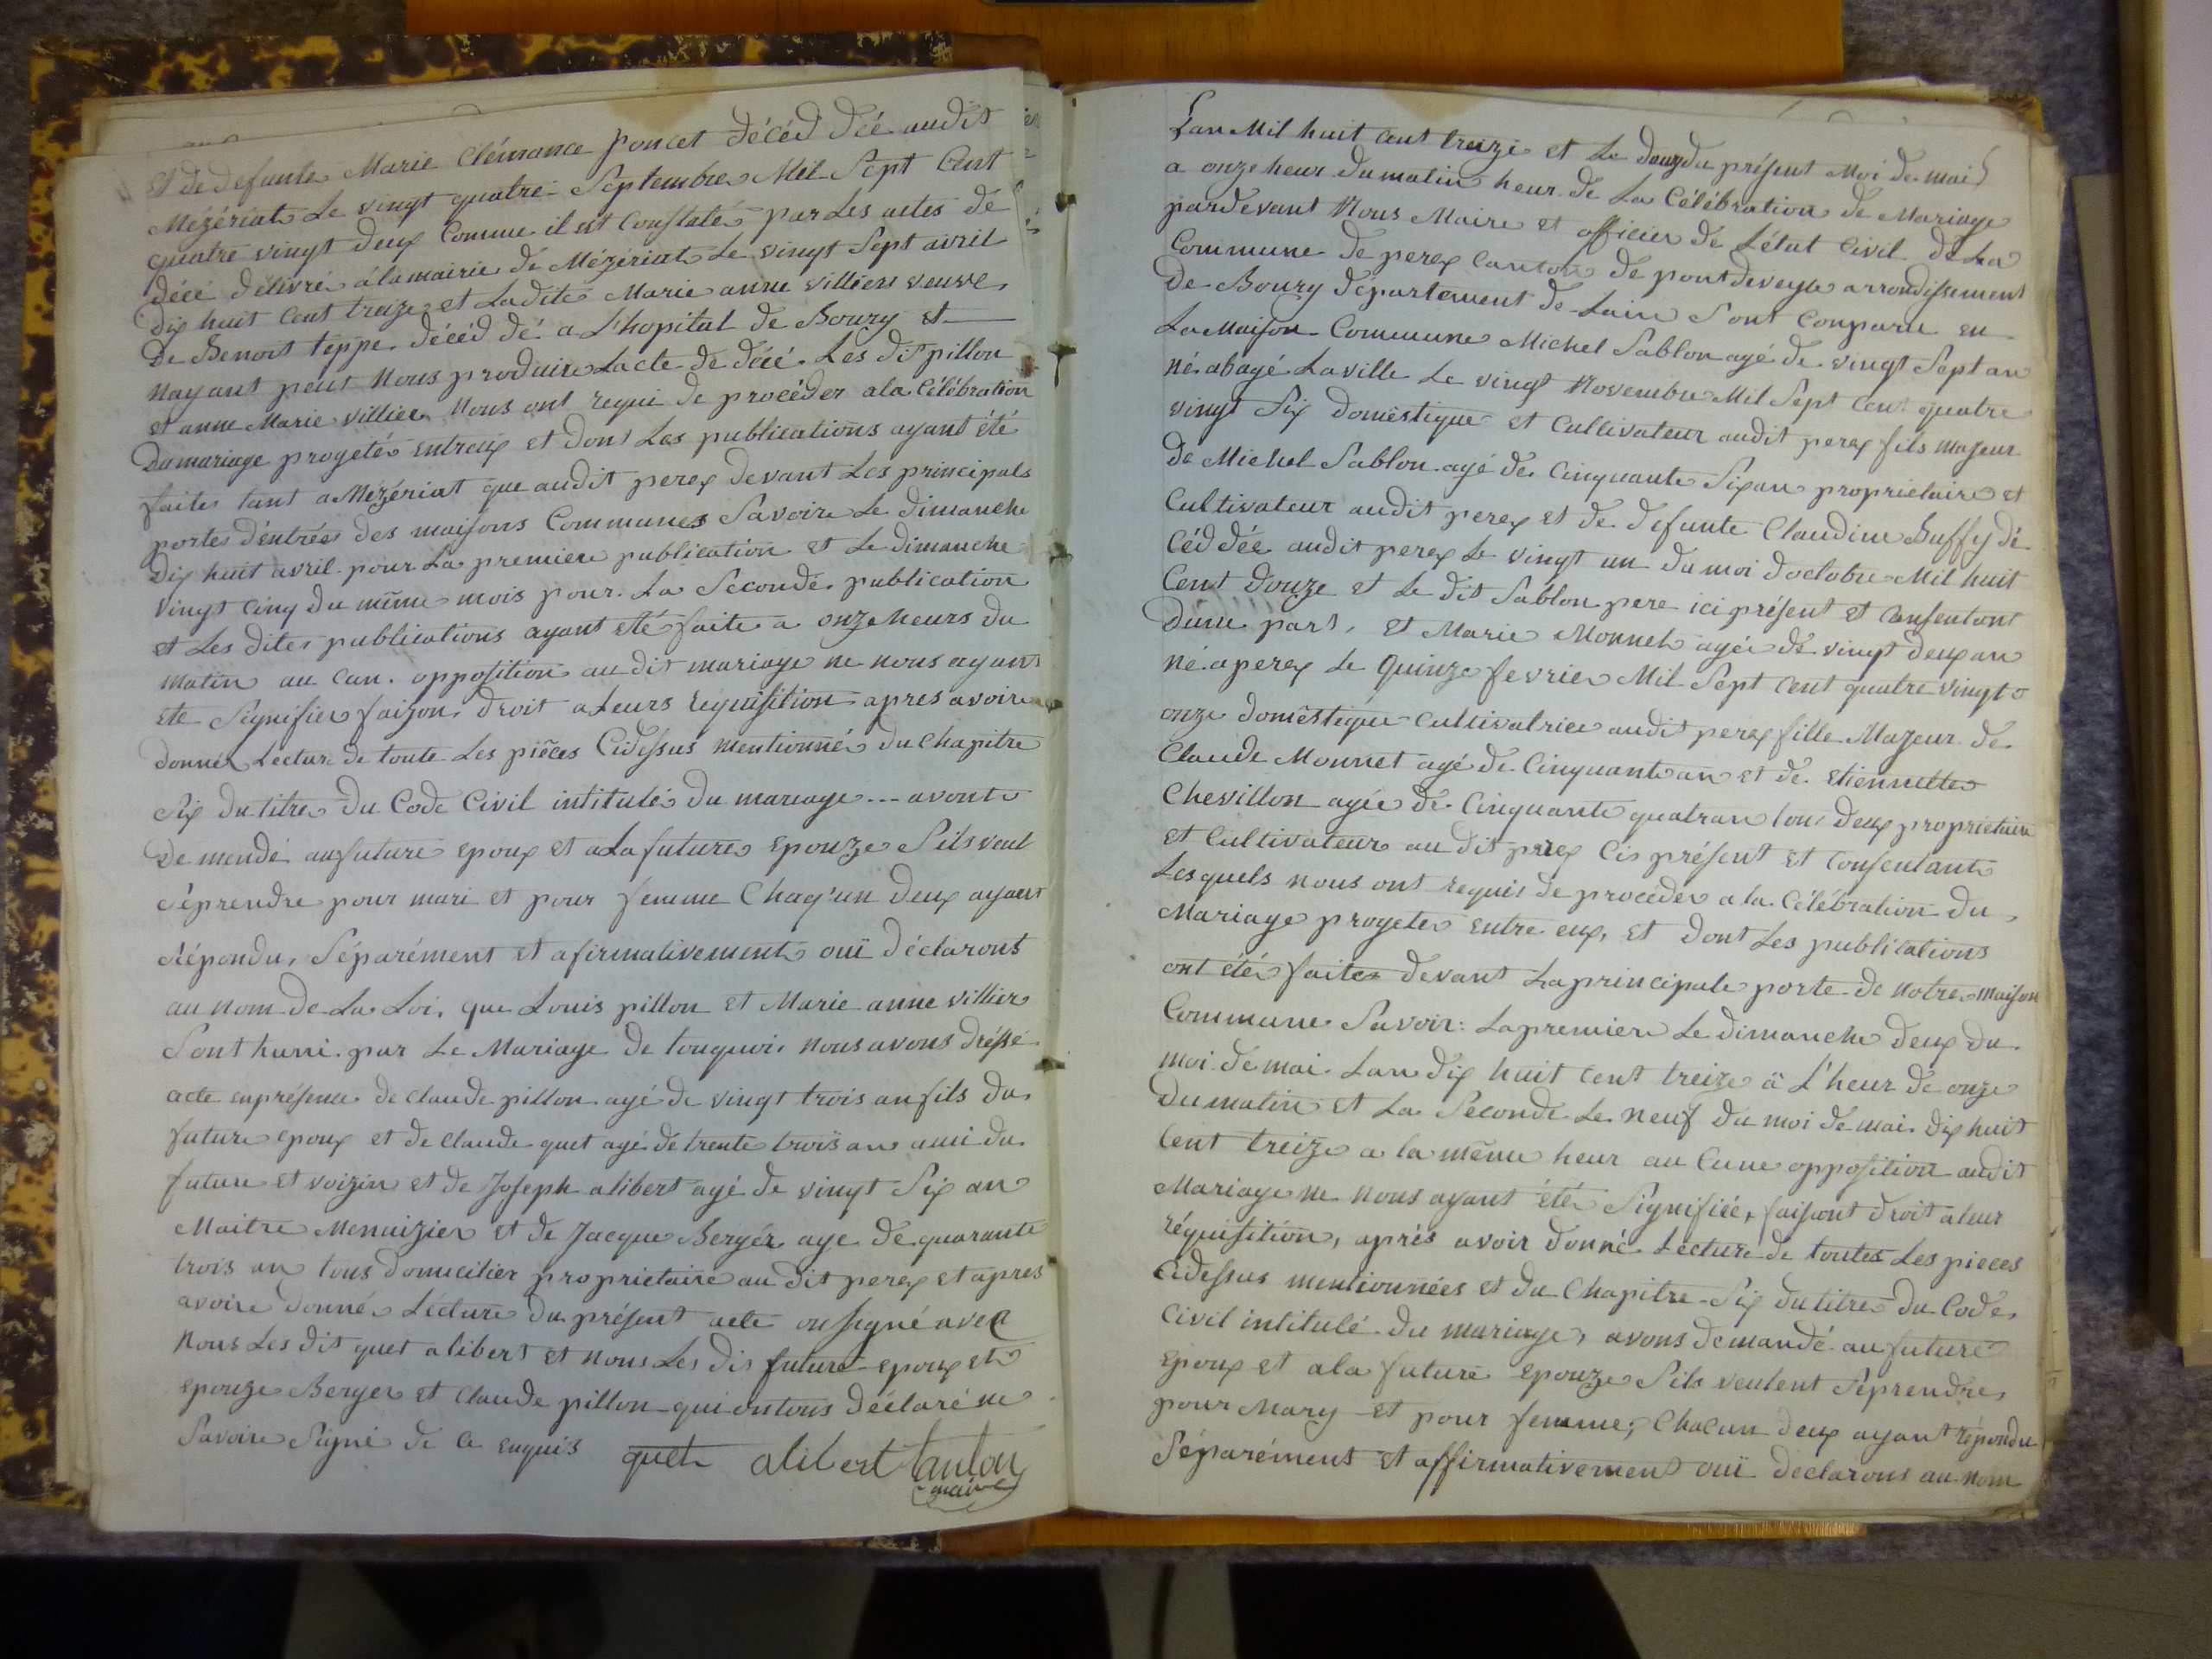 et de defunte Marie Clémance poncet décéd dée audit
Mézériat Le vingt quatre Septembre Mil Sept Cent
quatre vingt deux Comme il est Constaté par Les actes de
décé délivré à la mairie de Mézériat Le vingt Sept avril
dix huit Cent treize et Ladite Marie anne villiers veuve
De Benoit teppe décéd dé a L'hopital de Bourg et
nayant peut Nous produire Lacte de décé. Les dit pillon
et anne Marie villier Nous ont requi de procéder a la Célébration
Du mariage progeté entreux et dont Les publications ayant été
faite tant a Mézériat que audit perex devant Les principals
portes d'entrées des maisons Communes Savoire Le dimanche
dix huit avril pour La premiere publication et Le dimanche
vingt Cinq du même mois pour La Seconde publication
et Les dites publications ayant eté faite a onze heurs du
matin au cun opposition au dit mariage ne nous ayant
ete Signifier faizon droit a Leurs réquisition apres avoire
donné Lecture de toute Les pièces Cidessus mentionné du chapitre
Six du titre du Code Civil intitulé du mariage --- avont
de mendé au future epoux et a La future epouze S'ils veul
séprendre pour mari et pour femme Chaq'un deux ayaent
Répondu, Séparément et afirmativement oui déclaronts
au nom de La Loi, que Louis pillon et Marie anne villier
Sont huni par Le Mariage de touquoi nous avons dréssé
acte en présence de claude pillon agé de vingt trois an fils du
future epoux et de claude quet agé de trente trois an ami du
future et voizin et de Joseph alibert agé de vingt Six an
Maitre Menuizier et de Jacque Bergér age de quarante
trois an tous domicilier proprietaire au dit perex et apres
avoire donné Lécture du présent acte on signé avec
nous Les dit quet alibert et nous Les dis future epoux et
epouze Berger et claude pillon qui ontous déclaré ne
Savoire Signé de ce enquis quet alibert tanton
maire
Lan Mil huit cent treize et Le douz du présent Moi de mai
a onze heur du matin heur de La Célébration de Mariage
pardevant Nous Maire et officier de L'état Civil de La
Commune de perex Canton de pontdeveyle arrondissement
de Bourg département de Lain Sont Comparu en
La Maison Commune Michel Sablon agé de vingt Sept an
né abagé Laville Le vingt Novembre Mil Sept Cent quatre
vingt Six doméstique et Cultivateur audit perex fils majeur
de Michel Sablon agé de Cinquante Six an proprietaire et
Cultivateur audit perex et de defunte Claudine Buffy dé
céd dée audit perex Le vingt un du moi d'octobre Mil huit
Cent douze et Le dit Sablon pere ici présent et Consentant
dune part, et Marie Monnet agée de vingt deux an
né a perex Le quinze fevrier Mil Sept Cent quatre vingt
onze doméstique Cultivatrice audit perex fille Majeur de
Claude Monnet agé de Cinquante an et de etiennette
Chevillon agée de Cinquante quatran tous deux proprietaire
et Cultivateur au dit perex Cis présent et Consentant
Lesquels nous ont requis de proceder a la Célébration du
Mariage progeter entre eux, et dont Les publications
ont été faites devant La principale porte de notre maison
Commune Savoir: La premiere Le dimanche deux du
moi de mai Lan dix huit cent treize à L'heur de onze
du matin et La Seconde Le neuf du moi de mai dix huit
Cent treize a la même heur au Cune opposition audit
Mariage ne nous ayant été Signifiée, faisant droit a leur
réquisition, après avoir donné Lécture de toutes Les pieces
Cidessus mentionnées et du Chapitre Six du titre du Code
Civil intitulé du mariage, avons demandé au future
epoux et a la future epouze S'ils veulent Séprendre
pour Mary et pour femme; Chacun deux ayant répondu
Séparément et affirmativement oui declarons au nom